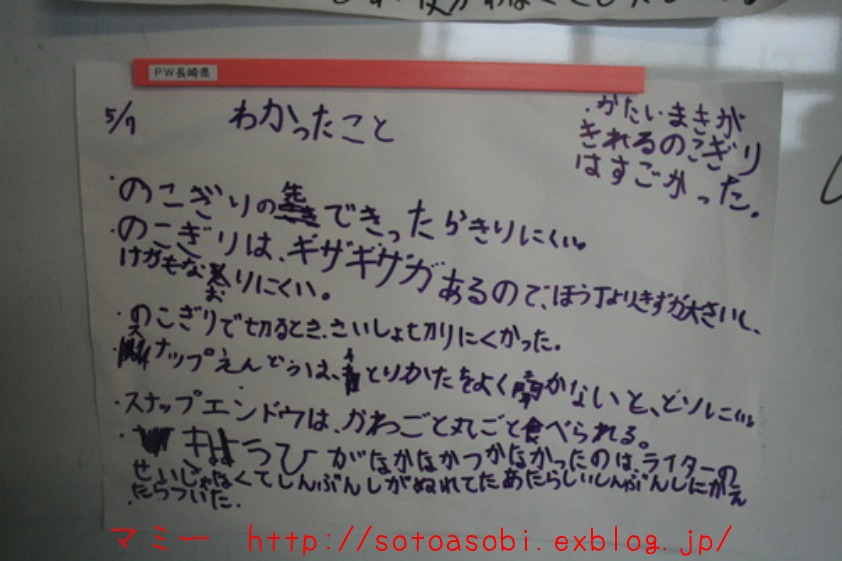 PW長崎県
5/7
わかったこと
・かたいまきが
きれるのこぎり
はすごかった。
・のこぎりの先できったらきりにくい。
・のこぎりは、ギザギザがあるので、ほう丁よりきずが大きいし、
けがもなおりにくい。
・のこぎりで切るとき、さいしょ切りにくかった。
・スナップえんどうは、とりかたをよく聞かないと、とりにくい。
・スナップエンドウは、かわごと丸ごと食べられる。
・がなかなかつかなかったのは、ライターの
せいじゃなくてしんぶんしがぬれてた あたらしいしんぶんしにかえ
たらついた。
マミー http://sotoasobi.exblog.jp/